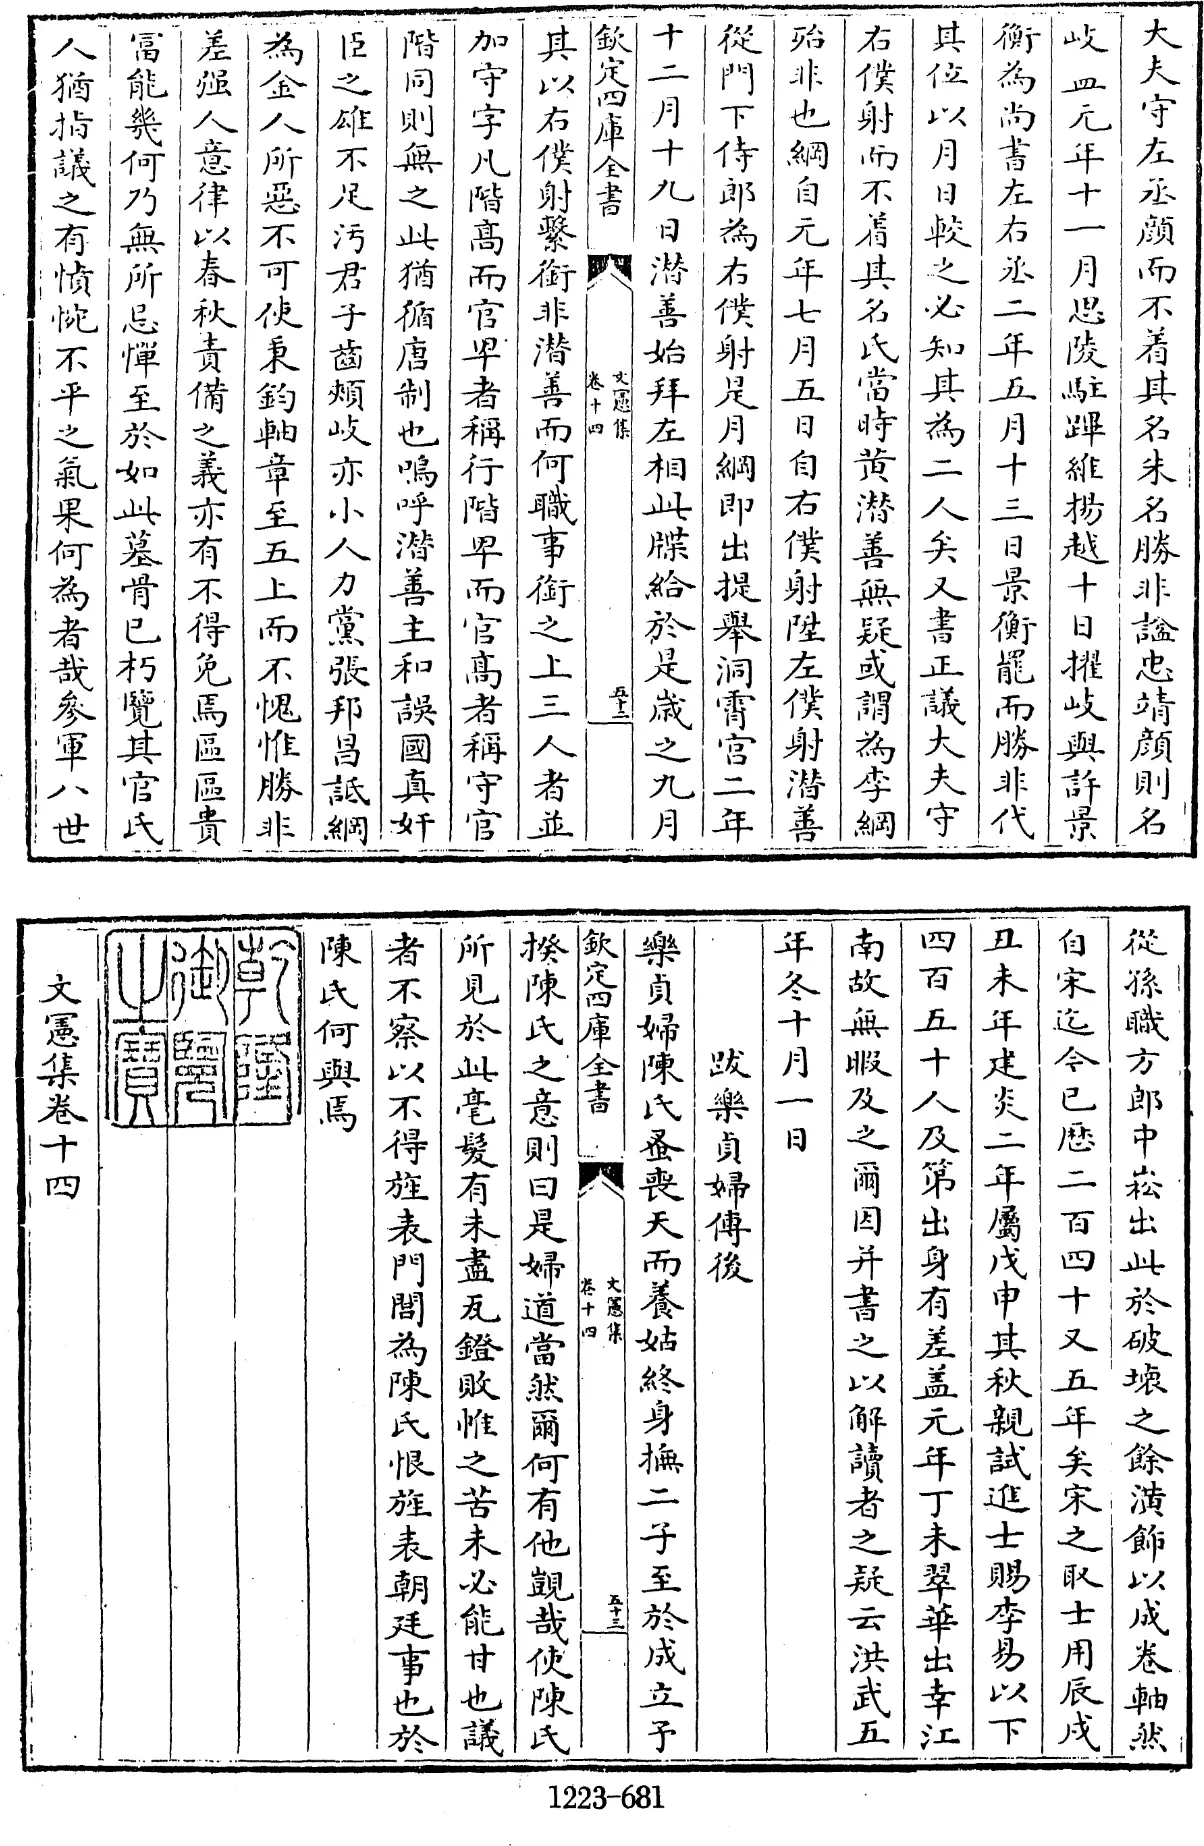 大夫守左丞顔而不着其名朱名勝非諡忠靖顔則名
岐皿元年十一月思陵駐蹕維揚越十日擢岐與許景
衡為尚書左右丞二年五月十三日景衡罷而勝非代
其位以月日較之必知其為二人矣又書正議大夫守
右僕射而不着其名氏當時黄潜善無疑或謂為李綱
殆非也綱自元年七月五日自右僕射陞左僕射潜善
從門下侍郎為右僕射是月綱即出提舉洞霄宫二年
十二月十九日潜善始拜左相此牒給於是歳之九月
欽定四庫全書
文憲集
卷十四
五十二
其以右僕射繫銜非潜善而何職事銜之上三人者並
加守字凡階髙而官卑者稱行階卑而官髙者稱守官
階同則無之此猶循唐制也嗚呼潜善主和誤國真奸
臣之雄不足汚君子齒頰岐亦小人力黨張邦昌詆綱
為金人所惡不可使秉鈞軸章至五上而不愧惟勝非
差强人意律以春秋責備之義亦有不得免焉區區貴
富能幾何乃無所忌憚至於如此墓骨已朽覽其官氏
人猶指議之有憤惋不平之氣果何為者哉參軍八世
從孫職方郎中崧出此於破壊之餘潢飾以成卷軸然
自宋迄今已歴二百四十又五年矣宋之取士用辰戌
丑未年建炎二年屬戊申其秋親試進士賜李易以下
四百五十人及第出身有差盖元年丁未翠華出幸江
南故無暇及之爾因并書之以解讀者之疑云洪武五
年冬十月一日
跋樂貞婦傳後
樂貞婦陳氏蚤喪天而養姑終身撫二子至於成立予
欽定四庫全書
文憲集
卷十四
五十三
揆陳氏之意則曰是婦道當然爾何有他覬哉使陳氏
所見於此毫髮有未盡瓦鐙敗帷之苦未必能甘也議
者不察以不得旌表門閭為陳氏恨旌表朝廷事也於
陳氏何與焉
乾隆
御覽
之寶
文憲集卷十四
1223-681